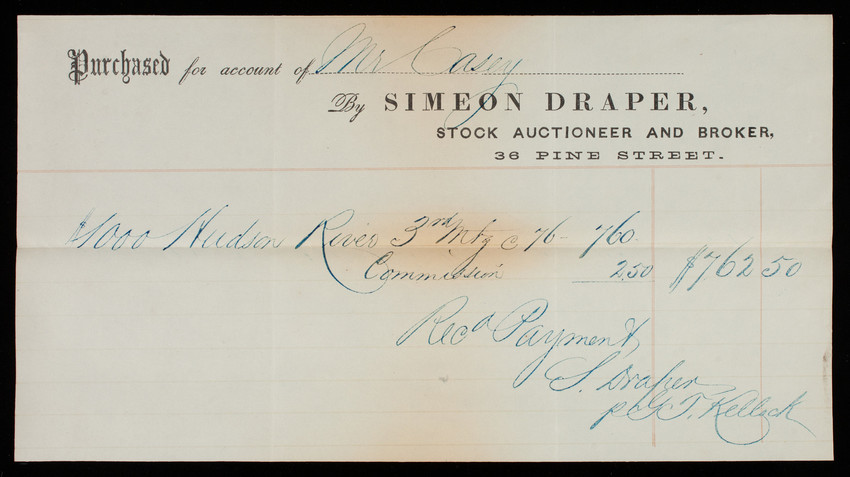 Purchased for account of Mr Casey
By SIMEON DRAPER,
STOCK AUCTIONEER AND BROKER,
36 PINE STREET.
$1000 Hudson River 3rd Mtg c 76 - 760.
Commission 2.50 $762 50
Recd Payment
S. Draper
p G. T. Kellock